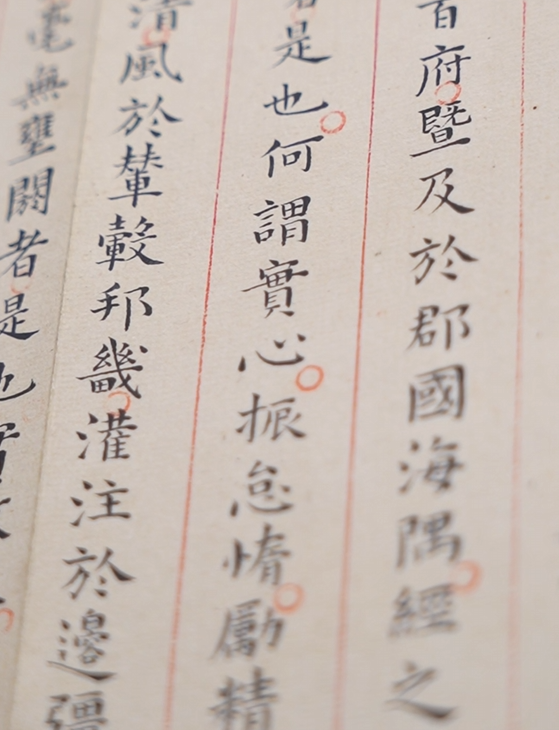 百府暨及於郡國海隅經之
是也何謂實心振怠惰勵精
清風於輦轂邦畿灌注於邊疆
毫無壅闕者是也實